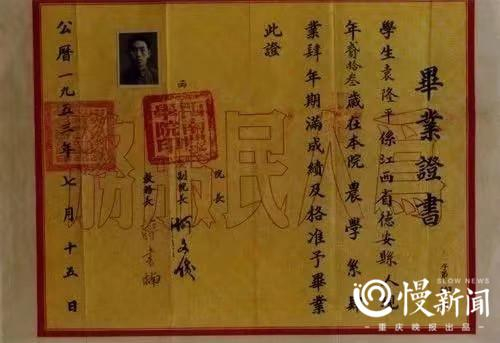 畢業證書
學生袁隆平係江西省德安縣人現
年貳拾叁歲在本院農學系肄
業肆年期滿成績及格准予畢業
此證
院長
副院長
教務長
公曆一九五三年七月十五日
為人民服務
SLOW NEWS
慢新闻
重庆晚报出品